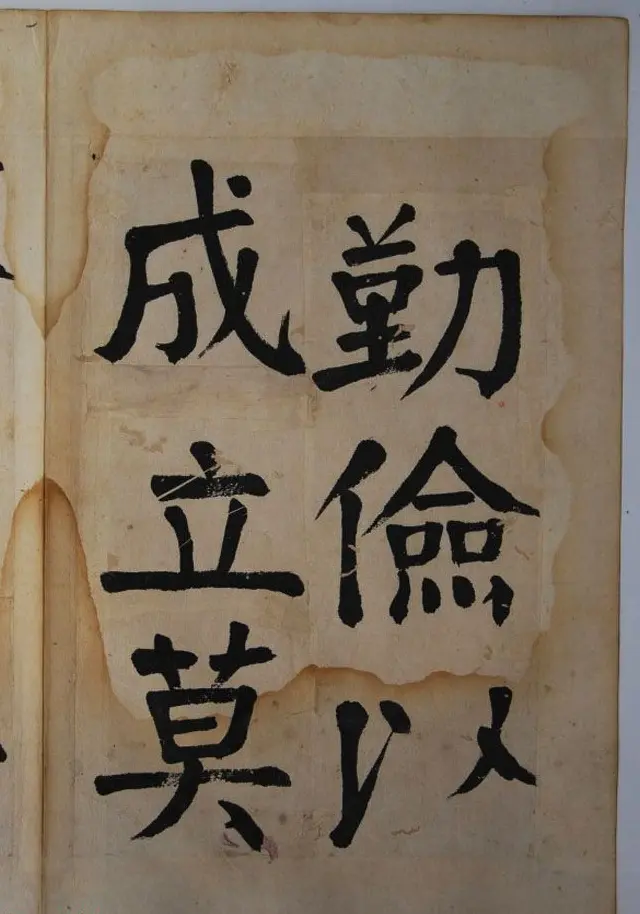 勤儉以
成立莫